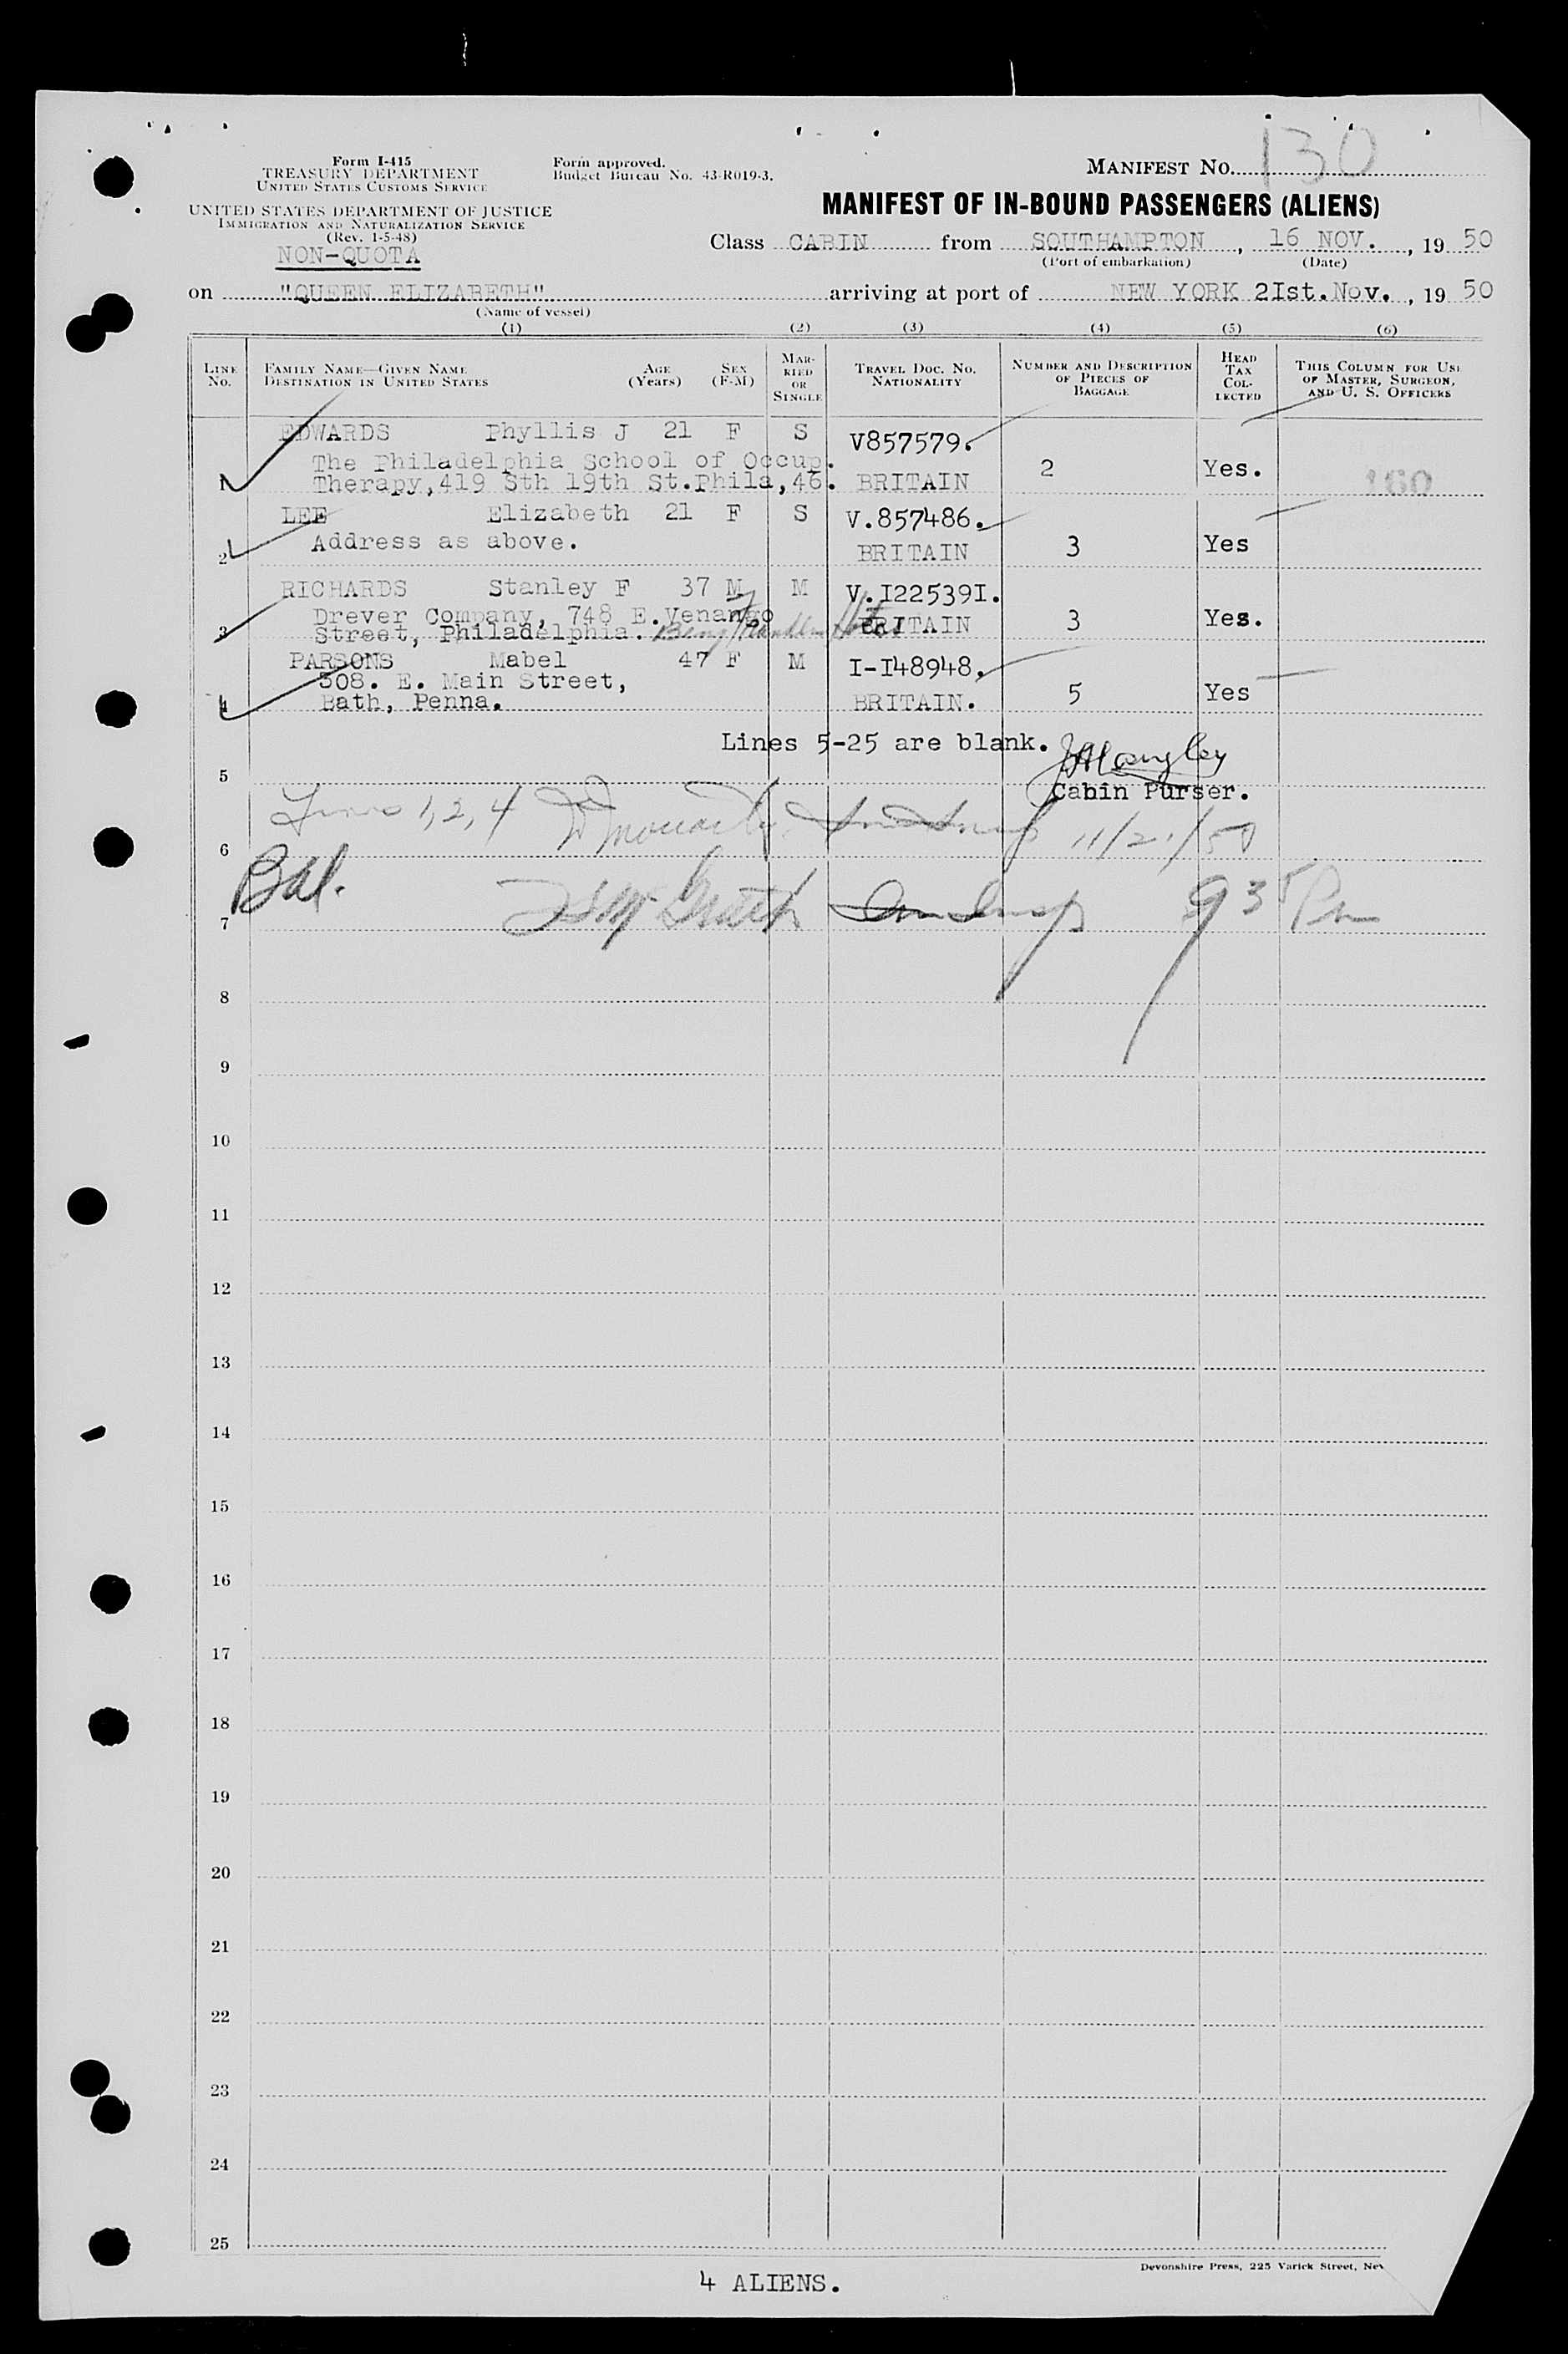 Form I-415
TREASURY DEPARTMENT
UNITED STATES CUSTOMS SERVICE
Form approved.
Budget Bureau No. 43-R019-3.
MANIFEST NO. 130
UNITED STATES DEPARTMENT OF JUSTICE
IMMIGRATION AND NATURALIZATION SERVICE
(Rev. 1-5-48)
NON-QUOTA
MANIFEST OF IN-BOUND PASSENGERS (ALIENS)
Class CABIN from SOUTHAMPTON, 16 NOV., 19 50
(Port of embarkation) (Date)
on "QUEEN ELIZABETH" arriving at port of NEW YORK 2Ist.Nov., 19 50
(Name of vessel)
(1) (2) (3) (4) (5) (6)
LINE No. FAMILY NAME—GIVEN NAME DESTINATION IN UNITED STATES AGE (Years) SEX (F-M) MARRIED OR SINGLE TRAVEL DOC. NO. NATIONALITY NUMBER AND DESCRIPTION OF PIECES OF BAGGAGE HEAD TAX COLLECTED THIS COLUMN FOR USE OF MASTER, SURGEON, AND U. S. OFFICERS
EDWARDS Phyllis J 21 F S V857579.
The Philadelphia School of Occup. 2 Yes.
1 Therapy,419 Sth 19th St.Phila,46. BRITAIN 160
LEE Elizabeth 21 F S V.857486.
2 Address as above. BRITAIN 3 Yes
RICHARDS Stanley F 37 M M V.I22539I.
Drever Company, 748 E.Venango BRITAIN 3 Yes.
3 Street, Philadelphia. Benj Franklin Hotel
PARSONS Mabel 47 F M I-I48948.
308. E. Main Street, 5 Yes
4 Bath, Penna. BRITAIN.
Lines 5-25 are blank.
5 Cabin Purser.
Lines 1, 2, 4 11/21/50
6
Bal. 9 35 Pm
7
8
9
10
11
12
13
14
15
16
17
18
19
20
21
22
23
24
25
Devonshire Press, 225 Varick Street, Nev
4 ALIENS.